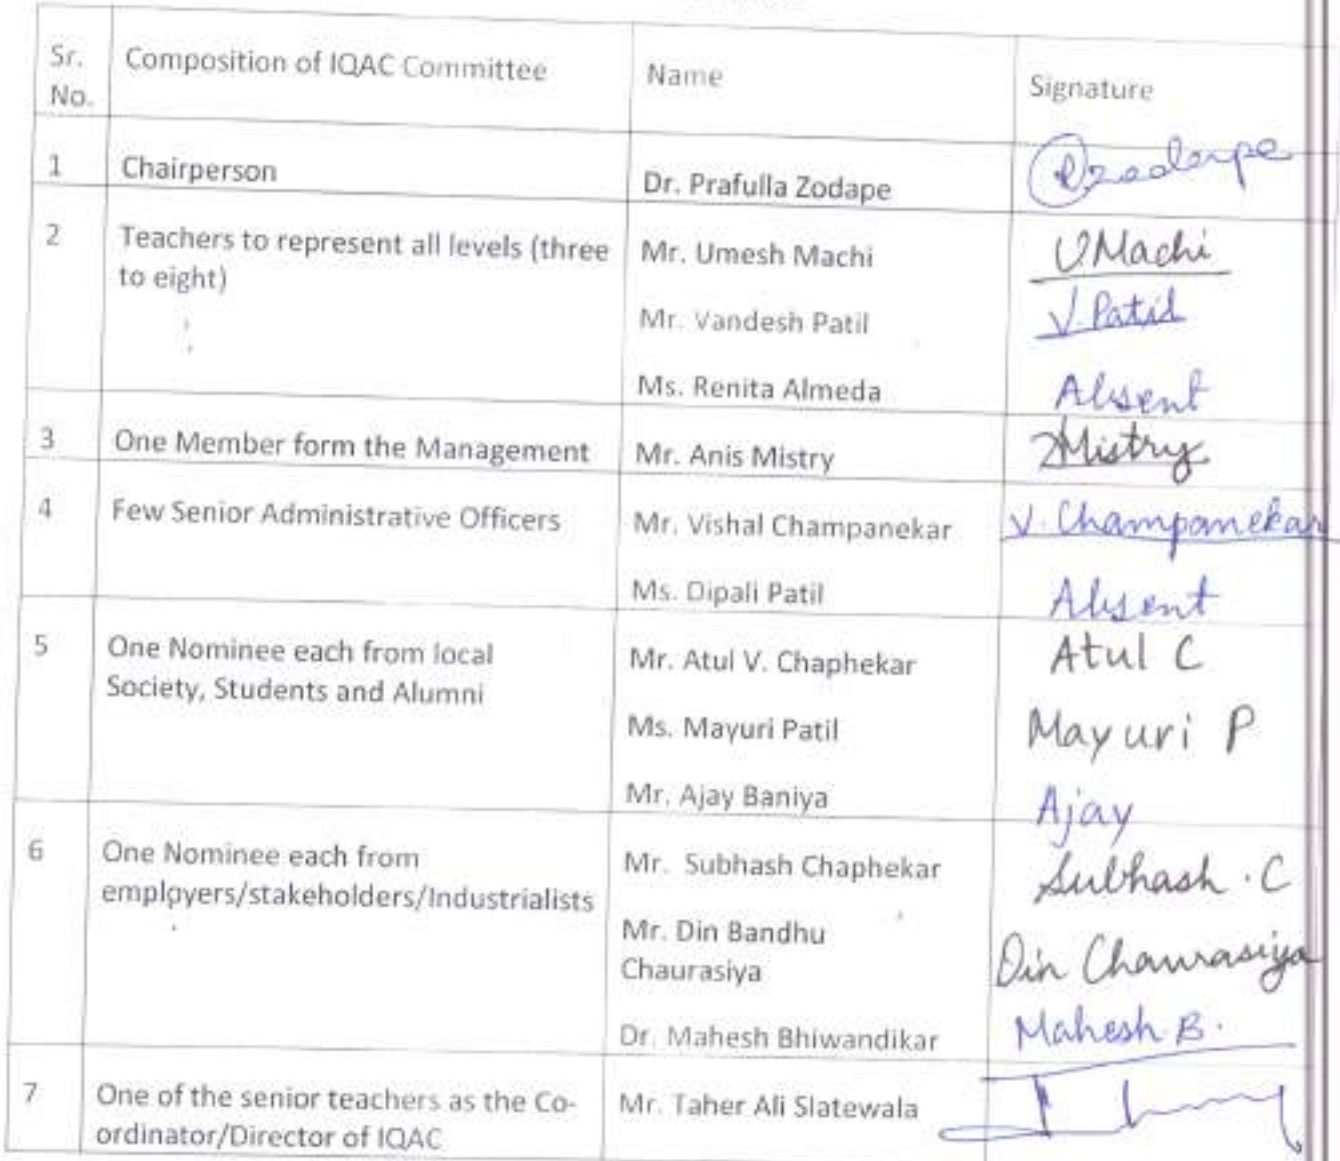 Sr. No. Composition of IQAC Committee Name Signature
1 Chairperson Dr. Prafulla Zodape Pzodape
2 Teachers to represent all levels (three to eight) Mr. Umesh Machi UMachi
Mr. Vandesh Patil V Patil
Ms. Renita Almeda Absent
3 One Member form the Management Mr. Anis Mistry Mistry
4 Few Senior Administrative Officers Mr. Vishal Champanekar V. Champanekar
Ms. Dipali Patil Absent
5 One Nominee each from local Society, Students and Alumni Mr. Atul V. Chaphekar Atul C
Ms. Mayuri Patil Mayuri P
Mr. Ajay Baniya Ajay
6 One Nominee each from employers/stakeholders/Industrialists Mr. Subhash Chaphekar Subhash . C
Mr. Din Bandhu Chaurasiya Din Chaurasiya
Dr. Mahesh Bhiwandikar Mahesh B.
7 One of the senior teachers as the Co-ordinator/Director of IQAC Mr. Taher Ali Slatewala